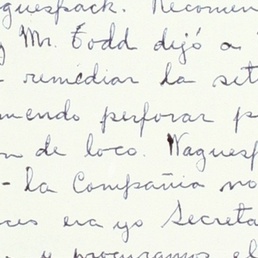 aguespack. Recomen
Mr. Todd dejó a
remediar la sit
mendo perforar p
n de loco. Waguesp
- la Compañia no
ces era yo Secreta
y procuramos el